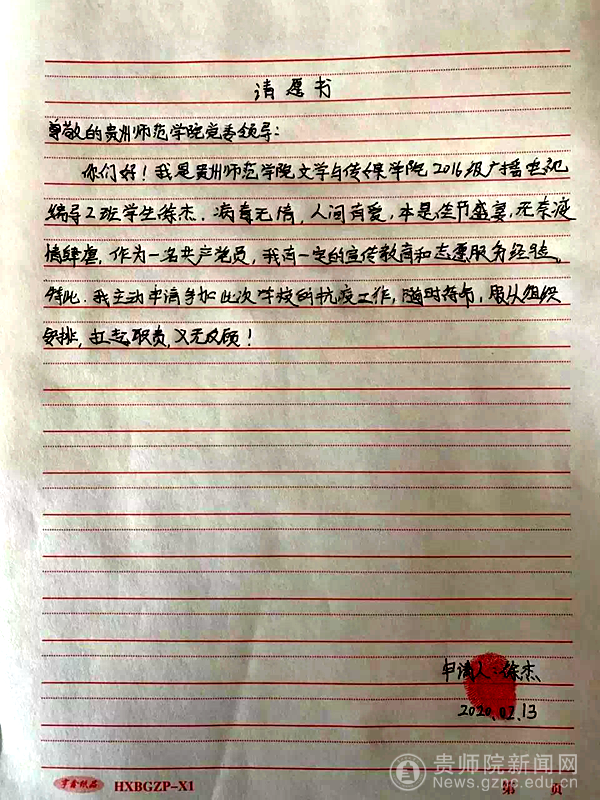 请愿书
尊敬的贵州师范学院党委领导：
你们好！我是贵州师范学院文学与传媒学院2016级广播电视
编导2班学生徐杰．病毒无情，人间有爱，本是佳节盛宴，无奈疫
情肆虐，作为一名共产党员，我有一定的宣传教育和志愿服务经验。
特此．我主动申请参加此次学校的抗疫工作，随时待命，服从组织
安排，扛起职责，义无反顾！
申请人：徐杰
2020.02.13
宇鑫纸品 HXBGZP-X1 第 页
贵师院新闻网
www.gznc.edu.cn